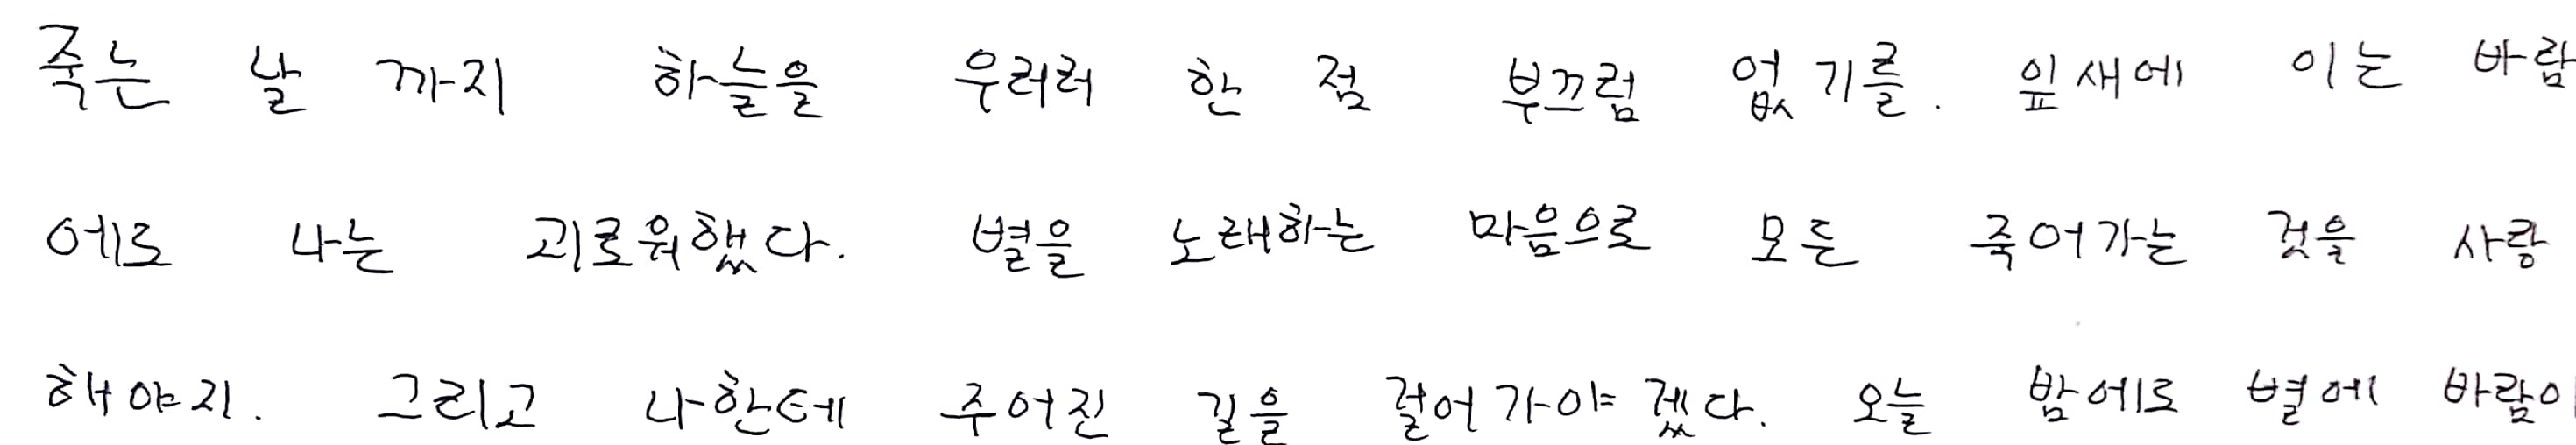 죽는 날 까지 하늘을 우러러 한 점 부끄럼 없기를. 잎새에 이는 바람
에로 나는 괴로워했다. 별을 노래하는 마음으로 모든 죽어가는 것을 사랑
해야지. 그리고 나한테 주어진 길을 걸어가야겠다. 오늘 밤에로 별에 바람이